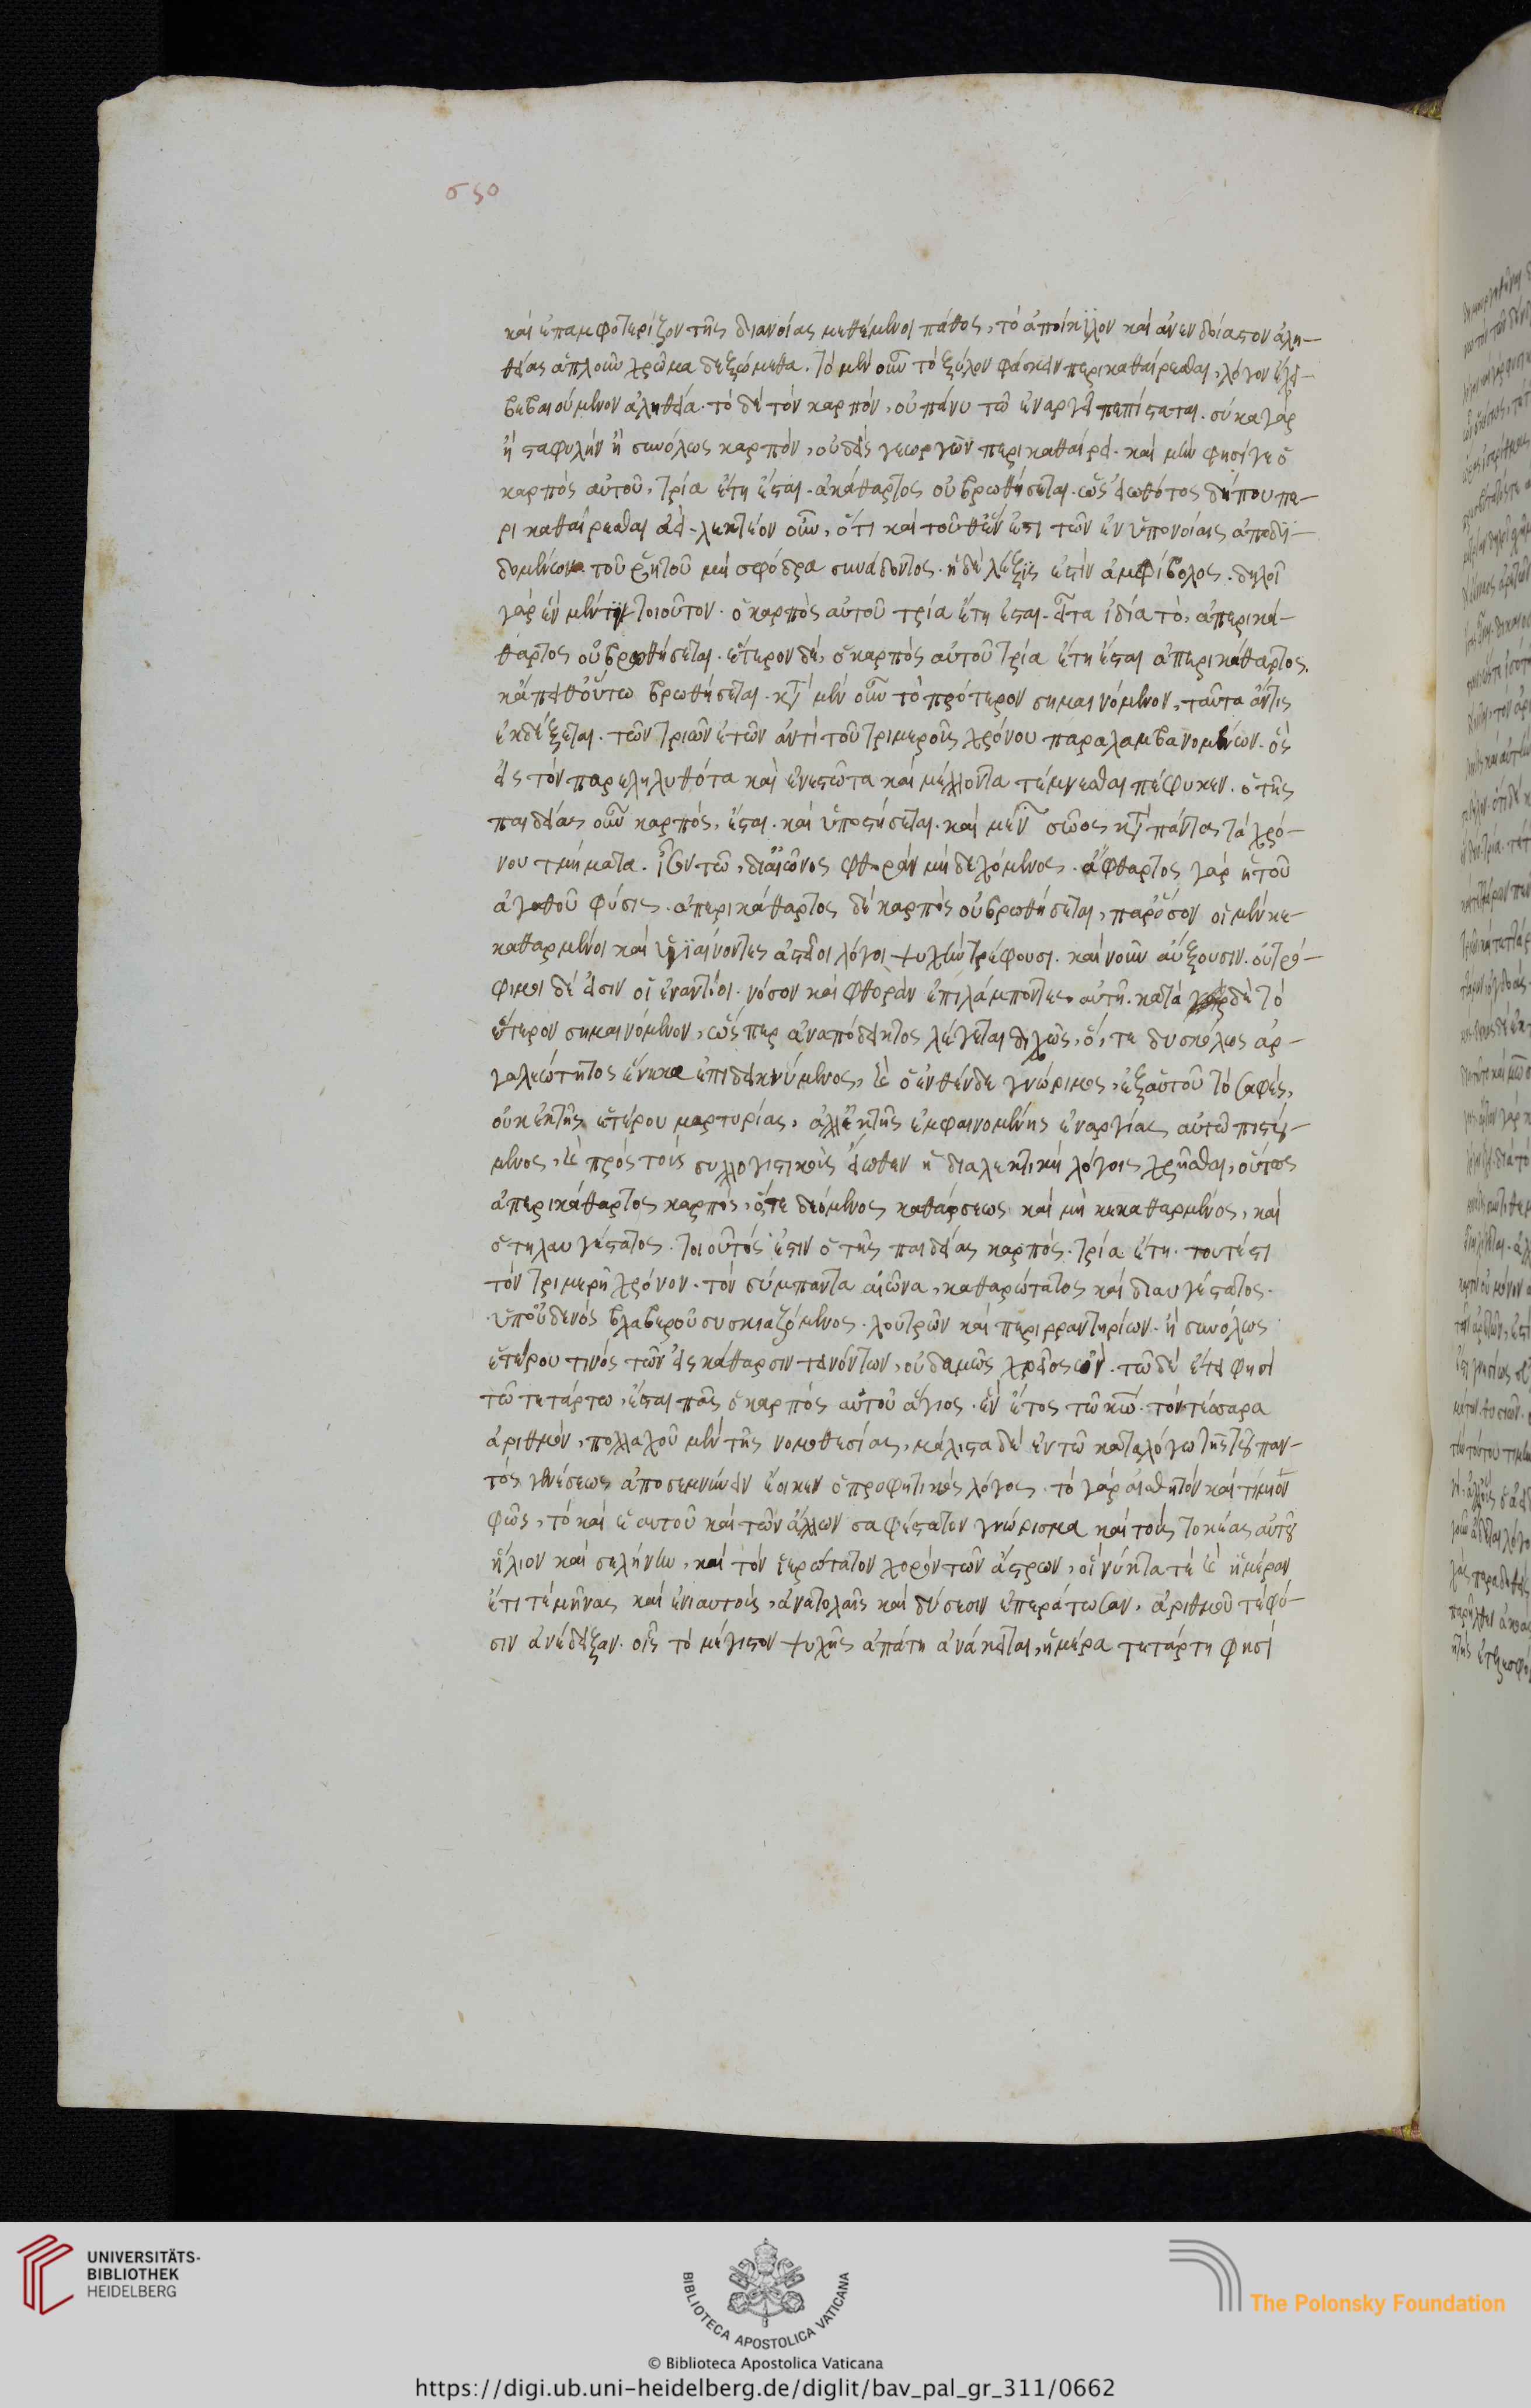 σςο
καὶ ἐπαμφοτερίζον τῆς διανοίας μεθέμενοι πάθος, τὸ ἀποίκιλον καὶ ἀνενδοίαστον ἀλη-
θείας ἁπλοῦν χρῶμα δεξώμεθα. τὸ μὲν οὖν τὸ ξύλον φάσκειν περικαθαίρεσθαι, λόγον εἶχε
βεβαιούμενον ἀληθεία. τὸ δὲ τὸν καρπὸν, οὐ πάνυ τῶ ἐναργεῖ πεπίσται. σύκα γὰρ
ἢ σταφυλὴν ἢ συνόλως καρπὸν, οὐδεὶς γεωργῶν περικαθαίρει. καὶ μὴν φησί γε ὁ
καρπὸς αὐτοῦ, τρία ἔτη ἔσται. ἀκάθαρτος οὐ βρωθήσεται. ὡς εἰωθότος δήπου πε-
ρικαθαίρεσθαι ἀεί. λεκτέον οὖν, ὅτι καὶ τοῦθ' ἕν ἐστι τῶν ἐν ὑπονοίαις ἀποδι-
δομένων. τοῦ ῥητοῦ μὴ σφόδρα συνάδοντος. ἡ δὲ λέξις ἐστὶν ἀμφίβολος. δηλοῖ
γὰρ ἓν μέν τι τοιοῦτον. ὁ καρπὸς αὐτοῦ τρία ἔτη ἔσται. εἶτα ἰδία τὸ, ἀπερικά-
θαρτος οὐ βρωθήσεται. ἕτερον δὲ, ὁ καρπὸς αὐτοῦ τρία ἔτη ἔσται ἀπερικάθαρτος.
κἄπειθ' οὕτω βρωθήσεται. κατὰ μὲν οὖν τὸ πρότερον σημαινόμενον, ταῦτα ἄν τις
ἐκδέξεται. τῶν τριῶν ἐτῶν ἀντὶ τοῦ τριμεροῦς χρόνου παραλαμβανομένων. ὃς
εἰς τὸν παρεληλυθότα καὶ ἐνεστῶτα καὶ μέλλοντα τέμνεσθαι πέφυκεν. ὁ τῆς
παιδείας οὖν καρπὸς, ἔσται. καὶ ὑποστήσεται. καὶ μενεῖ σῶος κατὰ πάντας τὰ χρό-
νου τμήματα. ἴσον τῶ, δι' αἰῶνος φθορὰν μὴ δεχόμενος. ἄφθαρτος γὰρ ἡ τοῦ
ἀγαθοῦ φύσις. ἀπερικάθαρτος δὲ καρπὸς οὐ βρωθήσεται, παρόσον οἱ μὲν κε-
καθαρμένοι καὶ ὑγιαίνοντες ἀστεῖοι λόγοι ψυχὴν τρέφουσι. καὶ νοῦν αὔξουσιν. οὐ τρό-
φιμοι δέ εἰσιν οἱ ἐναντίοι. νόσον καὶ φθορὰν ἐπιλάμποντες αὐτῆ. κατὰ δὲ τὸ
ἕτερον σημαινόμενον, ὥσπερ ἀναπόδεικτος λέγεται διχῶς, ὅ, τε δυσκόλως ἀρ-
γαλεώτητος ἕνεκα ἐπιδεικνύμενος, καὶ ὁ ἐνθένδε γνώριμος, ἐξ αὑτοῦ τὸ σαφὲς,
οὐκ ἐκ τῆς ἑτέρου μαρτυρίας, ἀλλ' ἐκ τῆς ἐμφαινομένης ἐναργίας αὐτῶ πιστευ-
μενος, καὶ πρὸς τοὺς συλλογιστικοὺς εἴωθεν ἡ διαλεκτικὴ λόγοις χρῆσθαι, οὕτως
ἀπερικάθαρτος καρπὸς, ὅ, τε δεόμενος καθάρσεως καὶ μὴ κεκαθαρμένος, καὶ
ὁ τηλαυγέστατος. τοιοῦτός ἐστιν ὁ τῆς παιδείας καρπὸς. τρία ἔτη. τουτέστι
τὸν τριμερῆ χρόνον. τὸν σύμπαντα αἰῶνα, καθαρώτατος καὶ διαυγέστατος.
ὑπ' οὐδενὸς βλαβεροῦ συσκιαζόμενος. λουτρῶν καὶ περιρραντηρίων. ἢ συνόλως
ἑτέρου τινὸς τῶν εἰς κάθαρσιν τεινόντων, οὐδαμῶς χρεῖος ὤν. τῶ δὲ ἔτει φησὶ
τῶ τετάρτω, ἔσται πᾶς ὁ καρπὸς αὐτοῦ ἅγιος. ἐν ἔτος τῶ κω. τὸν τέσσαρα
ἀριθμὸν, πολλαχοῦ μὲν τῆς νομοθεσίας, μάλιστα δὲ ἐν τῶ καταλόγω τῆς τοῦ παν-
τὸς γενέσεως ἀποσεμνύνειν ἔοικεν ὁ προφητικὸς λόγος. τὸ γὰρ αἰσθητὸν καὶ τίμιον
φῶς, τὸ καὶ ἑαυτοῦ καὶ τῶν ἄλλων σαφέστατον γνώρισμα καὶ τοὺς τοκέας αὐτοῦ
ἥλιον καὶ σελήνην, καὶ τὸν ἱερώτατον χορὸν τῶν ἄστρων, οἳ νύκτα τὲ καὶ ἡμέραν
ἔτι τὲ μῆνας καὶ ἐνιαυτοὺς, ἀνατολαῖς καὶ δύσεσιν ἐπεράτωσαν, ἀριθμοῦ τὲ φύ-
σιν ἀνέδειξαν. οἷς τὸ μέγιστον ψυχῆς ἀπάτη ἀνάκειται, ἡμέρα τετάρτη φησὶ
UNIVERSITÄTS-
BIBLIOTHEK
HEIDELBERG
BIBLIOTECA APOSTOLICA VATICANA
The Polonsky Foundation
© Biblioteca Apostolica Vaticana
https://digi.ub.uni-heidelberg.de/diglit/bav_pal_gr_311/0662